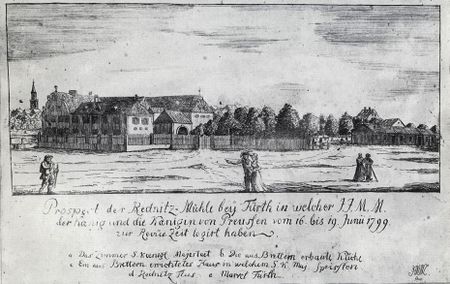 Prospect der Rednitz-Mühle beÿ Fürth in welcher I I. M. M.
der König und die Königin von Preussen vom 16. bis 19. Junii 1799.
zur Revüe Zeit logirt haben
a Das Zimmer S. Königl. Majestaet b Die aus Brettern erbaute Küche
c Ein aus Brettern errichtetes Haus in welchem S. K. Maj. Speisten
d Rednitz Flus. e Marckt Fürth.